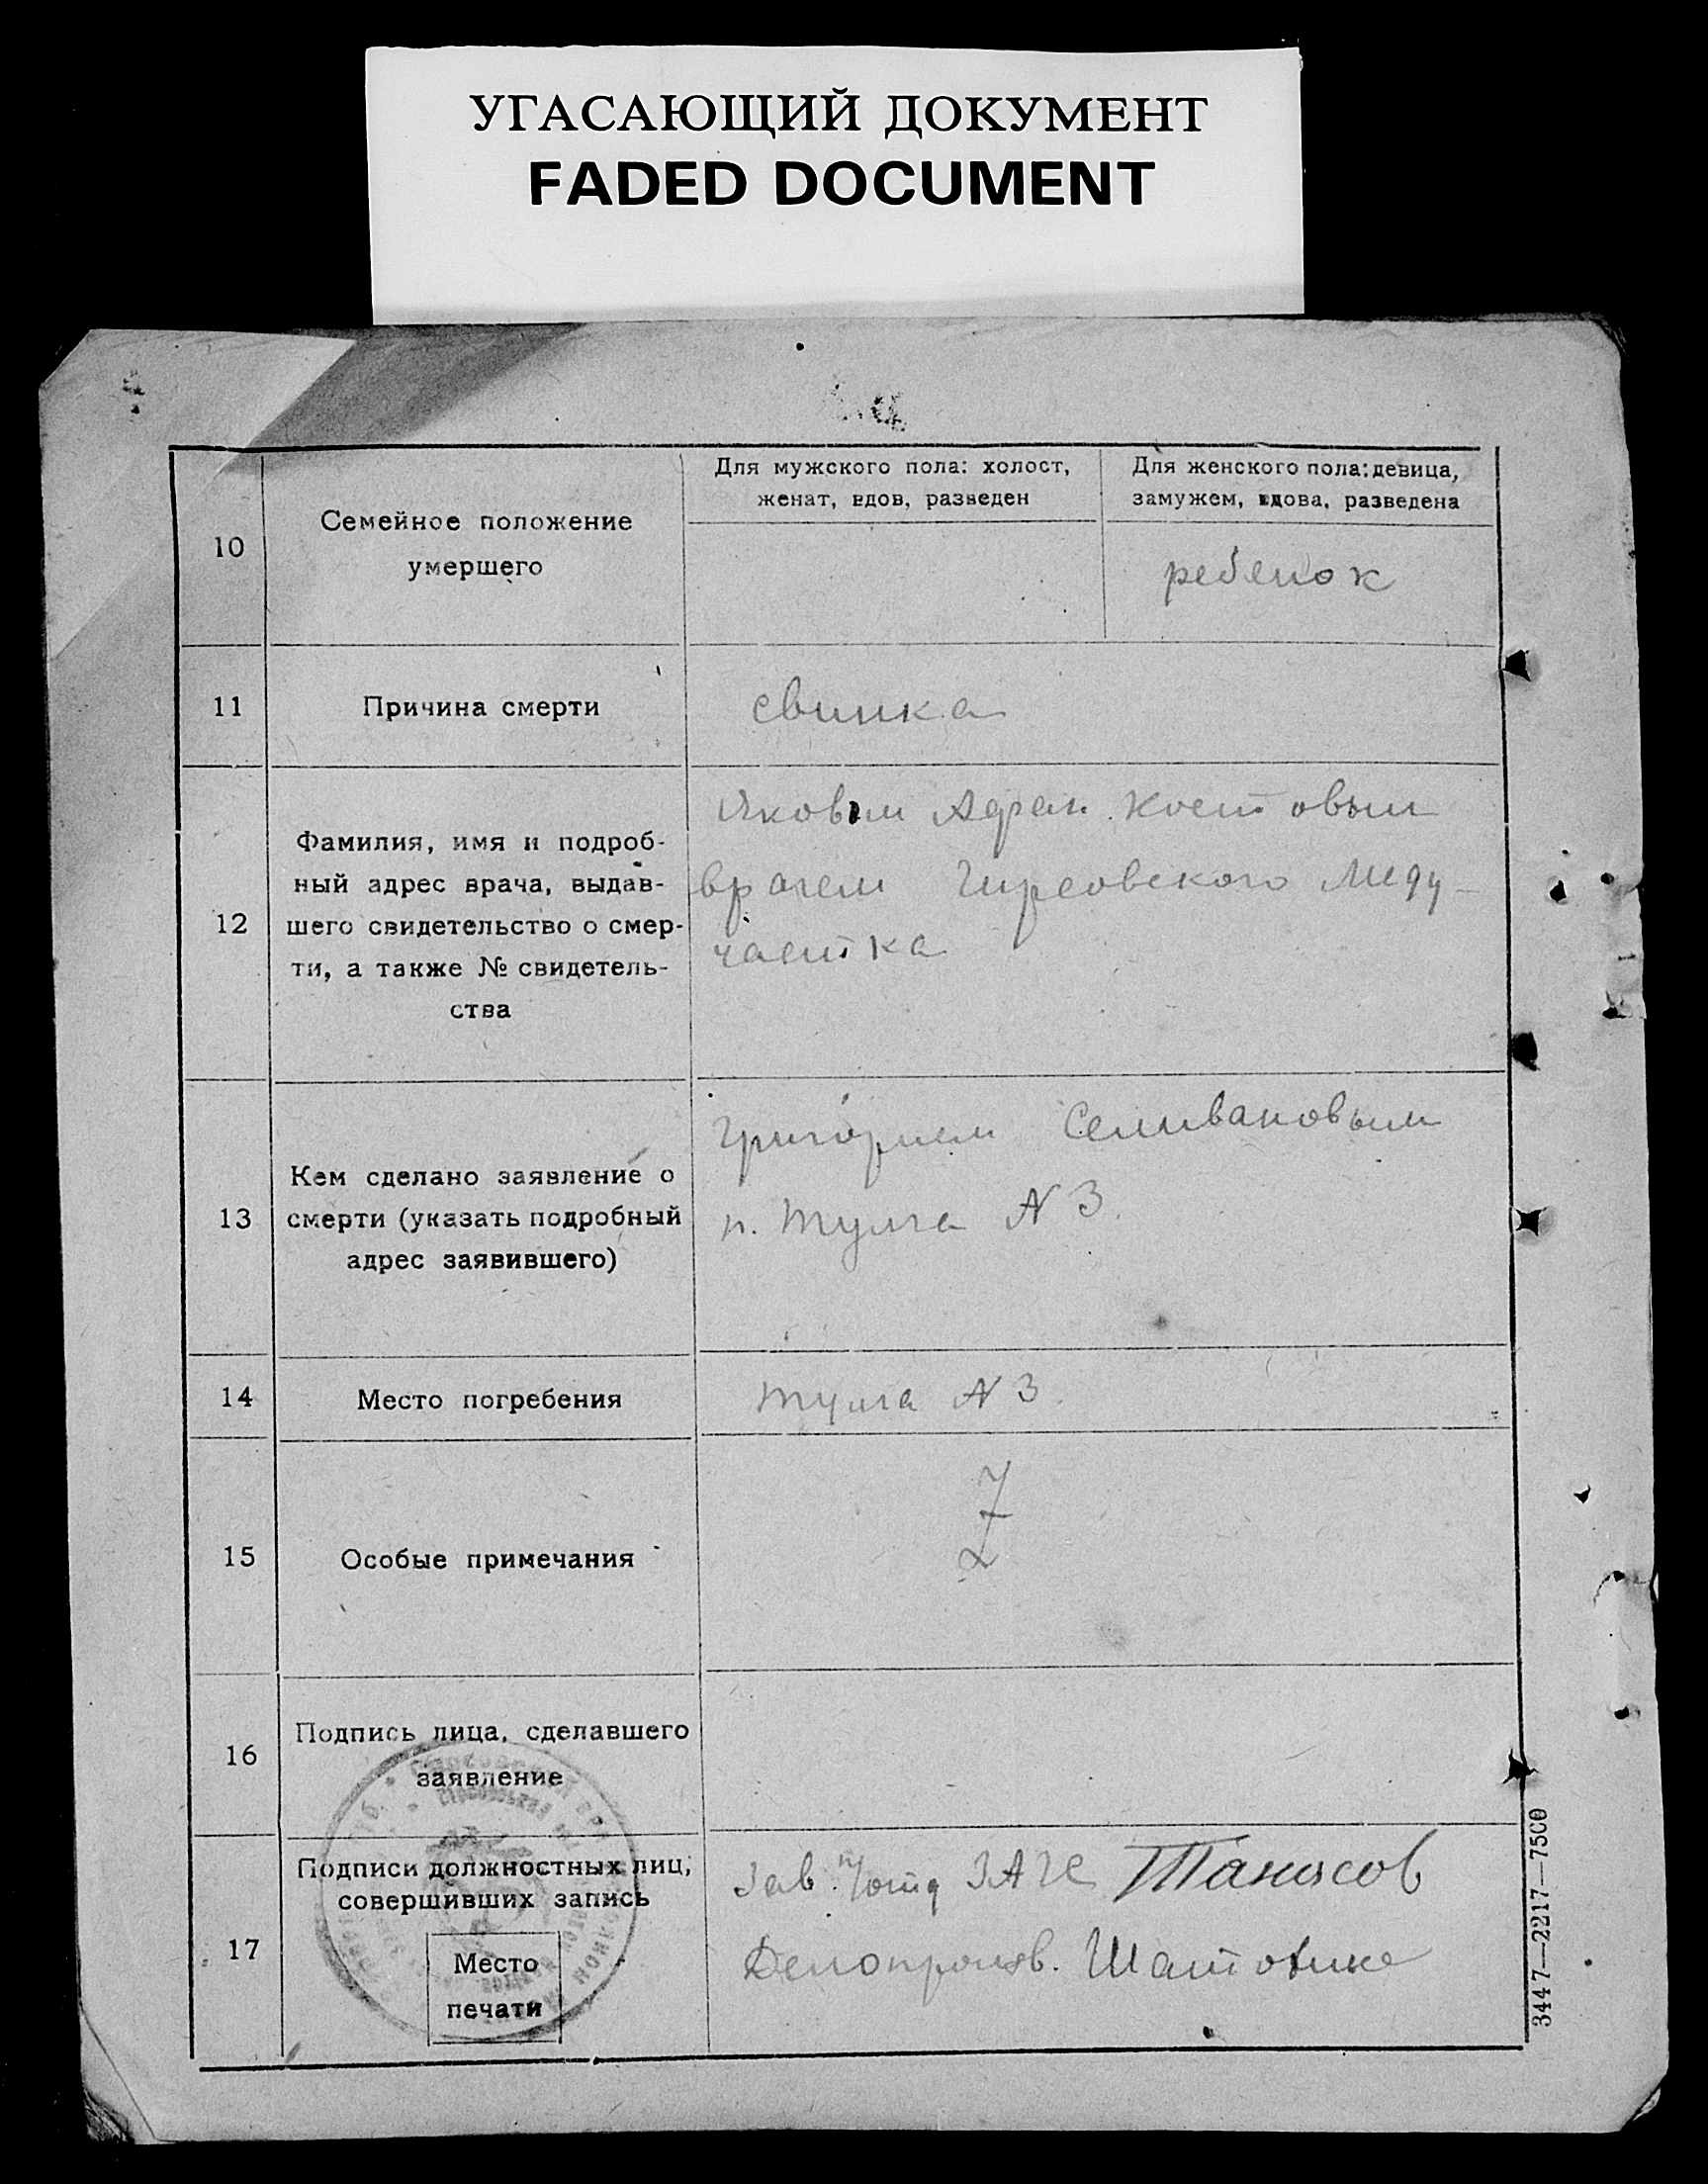 УГАСАЮЩИЙ ДОКУМЕНТ
FADED DOCUMENT
10
Семейное положение
умершего
Для мужского пола: холост,
женат, вдов, разведен
Для женского пола: девица,
замужем, вдова, разведена
ребенок
11
Причина смерти
свинка
12
Фамилия, имя и подроб-
ный адрес врача, выдав-
шего свидетельство о смер-
ти, а также № свидетель-
ства
Яковым
врачем Гирсовского Меду-
частка
13
Кем сделано заявление о
смерти (указать подробный
адрес заявившего)
Григорием Селивановым
п. Тулга N 3.
14
Место погребения
Тулга N 3.
15
Особые примечания
Z
16
Подпись лица, сделавшего
заявление
17
Подписи должностных лиц,
совершивших запись
Место
печати
Зав. ЗАГС
Делопроизв.
3447—2217—7500